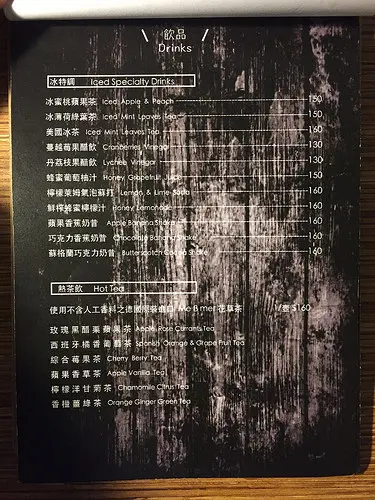 飲品
Drinks
冰特調 Iced Specialty Drinks
冰蜜桃蘋果茶 Iced Apple & Peach 150
冰薄荷綠葉茶 Iced Mint Leaves Tea 150
美國冰茶 Iced Mint Leaves Tea 160
蔓越莓果醋飲 Cranberries Vinegar 130
丹荔枝果醋飲 Lychee Vinegar 130
蜂蜜葡萄柚汁 Honey Grapefruit Juice 150
檸檬萊姆氣泡蘇打 Lemon & Lime Soda 160
鮮檸蜂蜜檸檬汁 Honey Lemonade 160
蘋果香蕉奶昔 Apple Banana Shake 160
巧克力香蕉奶昔 Chocolate Banana Shake 160
蘇格蘭巧克力奶昔 Butterscotch Cocoa Shake 160
熱茶飲 Hot Tea
使用不含人工香料之德國原裝進口 Me B mer 花草茶 /壺 $160
玫瑰黑醋栗蘋果茶 Apple Rose Currants Tea
西班牙橘香葡萄茶 Spanish Orange & Grape Fruit Tea
綜合莓果茶 Cherry Berry Tea
蘋果香草茶 Apple Vanilla Tea
檸檬洋甘菊茶 Chamomile Citrus Tea
香橙薑綠茶 Orange Ginger Green Tea